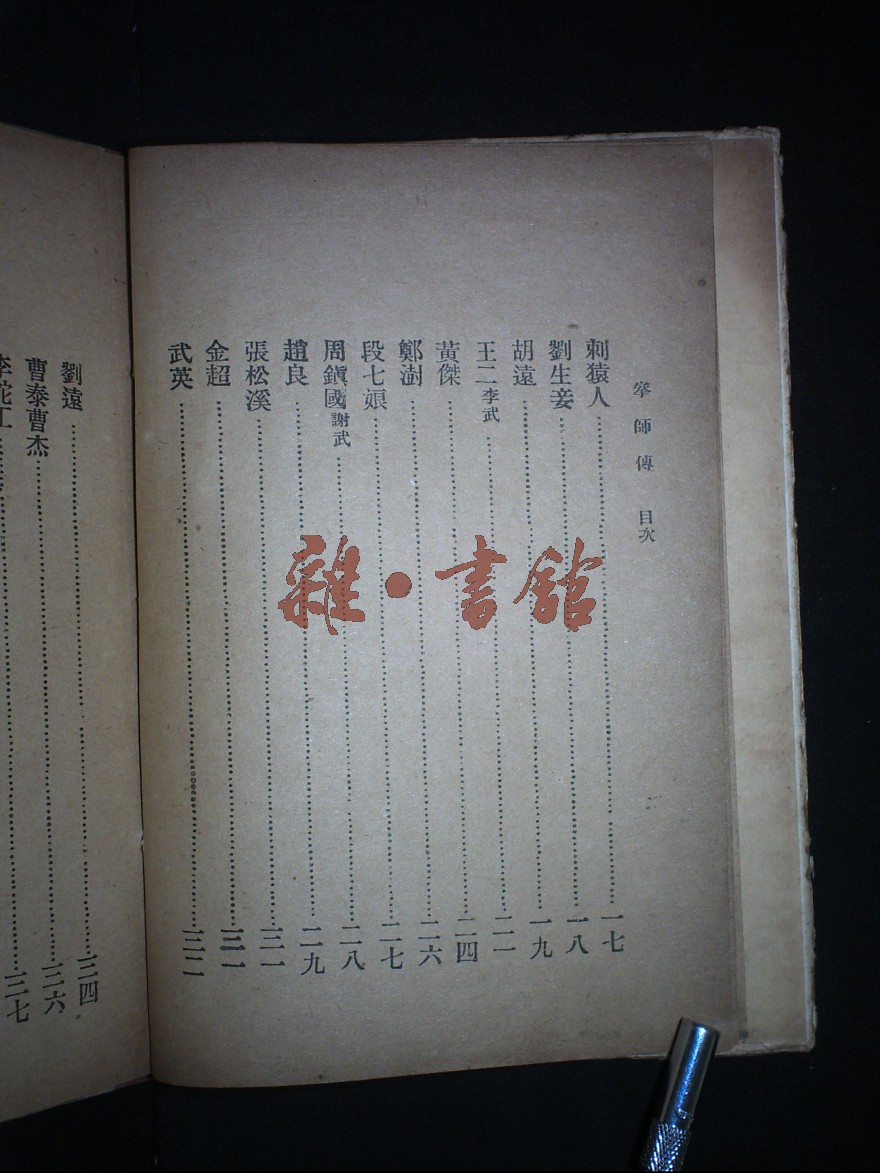 拳師傳 目次
刺猿人……一七
劉生妾……一八
胡遠……一九
王二李武……二一
黃傑……二四
鄭澍……二六
段七娘……二七
周鎭國謝武……二八
趙良……二九
張松溪……三一
金超……三一
武英……三二
劉遠……三四
曹泰曹杰……三六
……三七
雜·書館